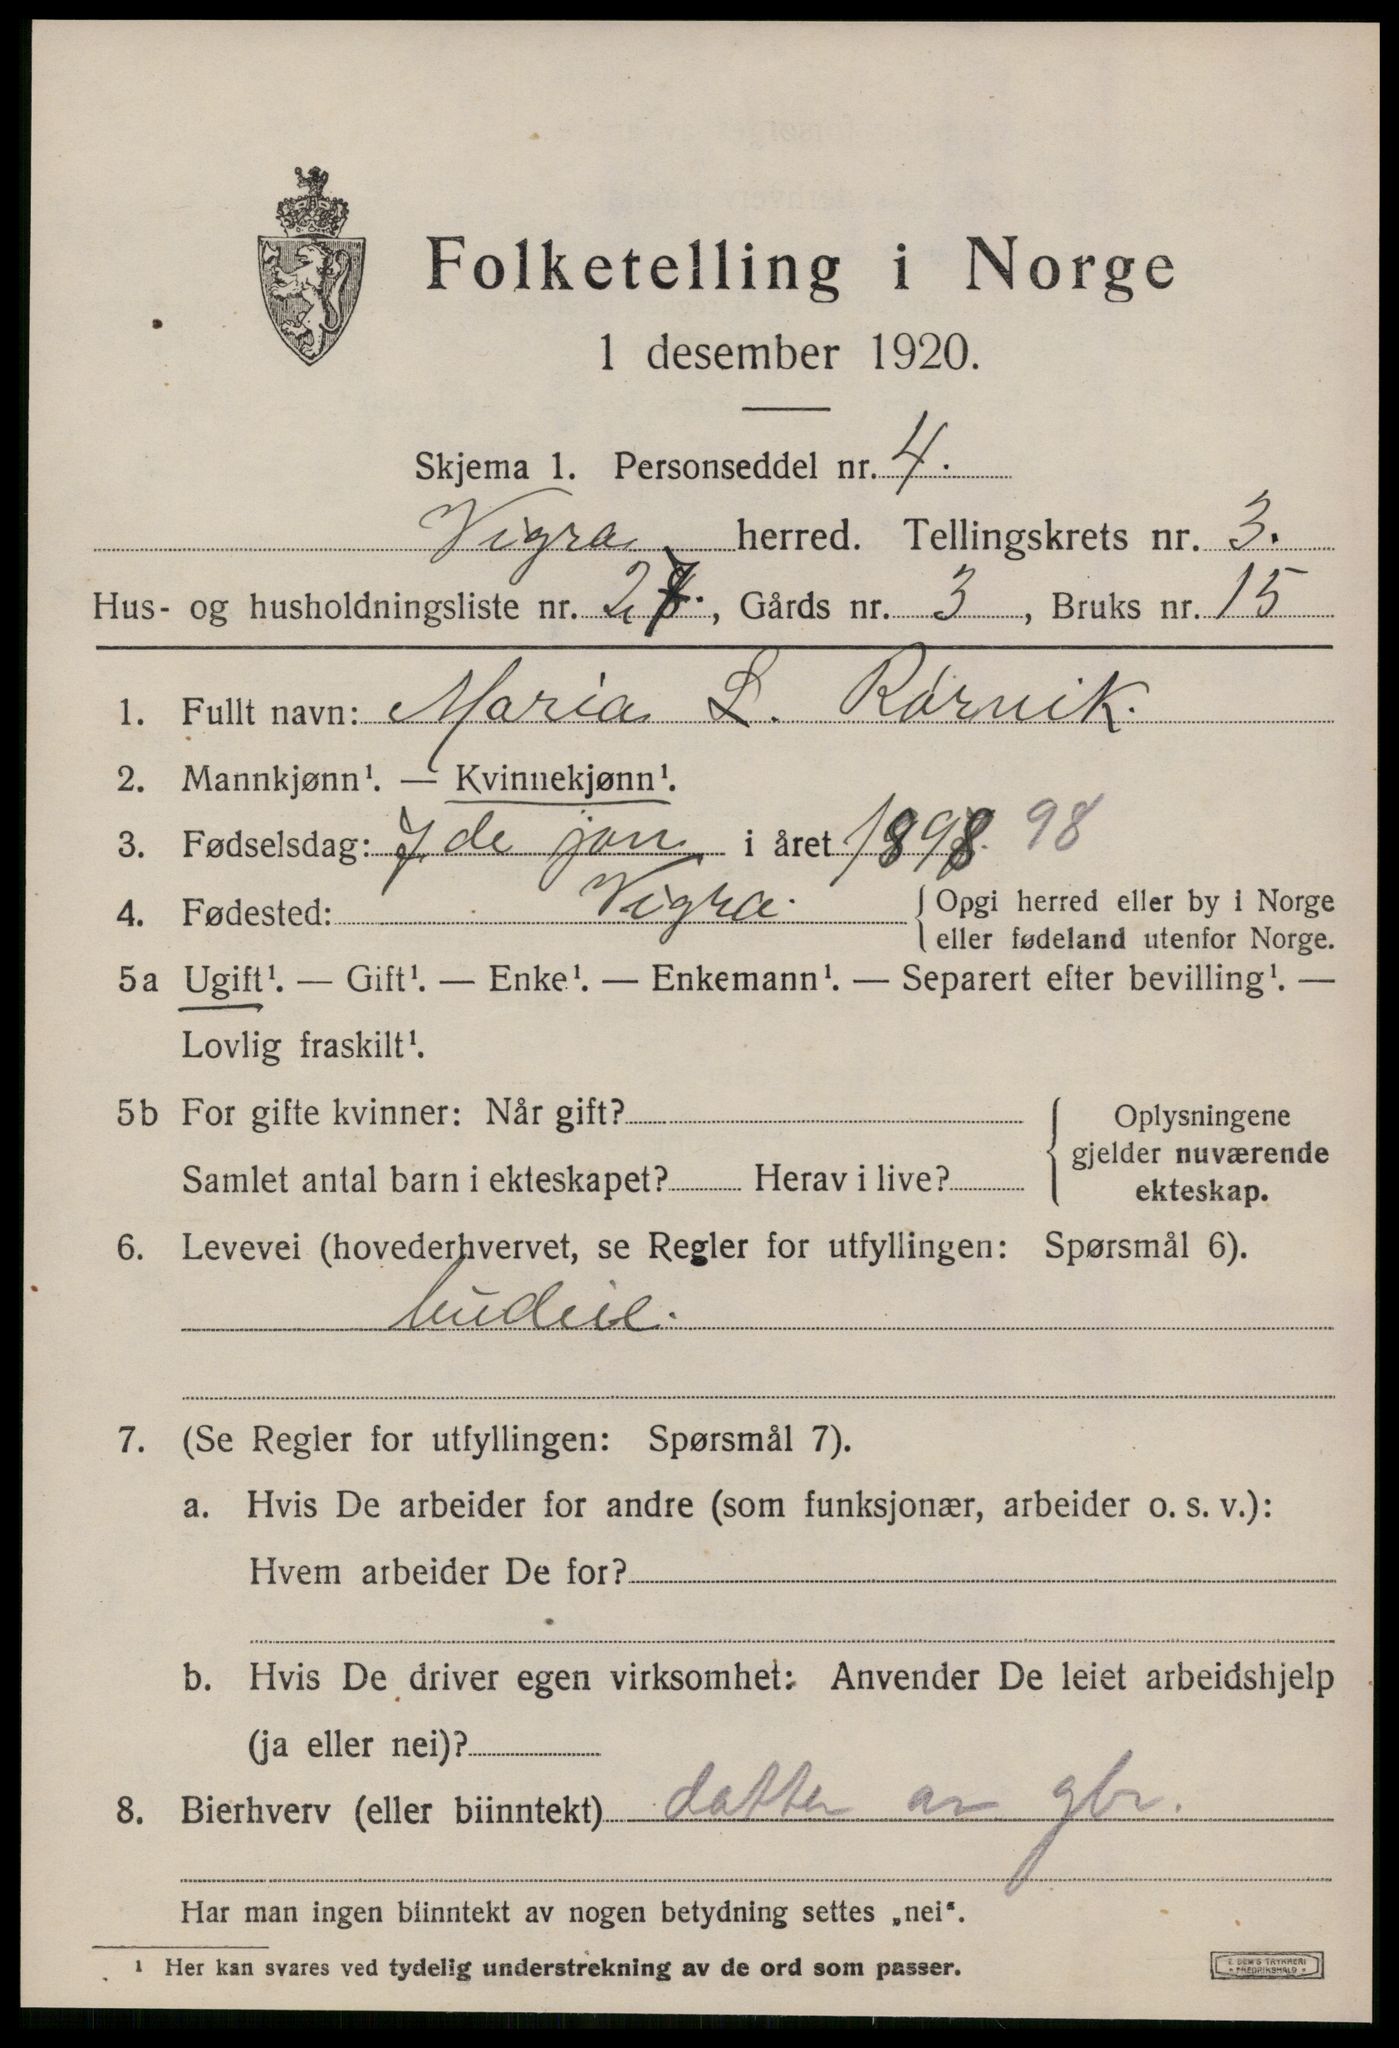 Folketelling i Norge
1 desember 1920.
Skjema 1. Personseddel nr. 4.
Vigra herred. Tellingskrets nr. 3.
Hus- og husholdningsliste nr. 27., Gårds nr. 3, Bruks nr. 15
1. Fullt navn: Maria L. Rörvik.
2. Mannkjønn¹. — Kvinnekjønn¹.
3. Fødselsdag: 7de jan i året 1898. 98
4. Fødested: Vigra. Opgi herred eller by i Norge
eller fødeland utenfor Norge.
5a Ugift¹. — Gift¹. — Enke¹. — Enkemann¹. — Separert efter bevilling¹. —
Lovlig fraskilt¹.
5b For gifte kvinner: Når gift?
Samlet antal barn i ekteskapet? Herav i live?
Oplysningene
gjelder nuværende
ekteskap.
6. Levevei (hovederhvervet, se Regler for utfyllingen: Spørsmål 6).
budeie.
7. (Se Regler for utfyllingen: Spørsmål 7).
a. Hvis De arbeider for andre (som funksjonær, arbeider o. s. v.):
Hvem arbeider De for?
b. Hvis De driver egen virksomhet: Anvender De leiet arbeidshjelp
(ja eller nei)?
8. Bierhverv (eller biinntekt) datter av gbr.
Har man ingen biinntekt av nogen betydning settes „nei“.
¹ Her kan svares ved tydelig understrekning av de ord som passer.